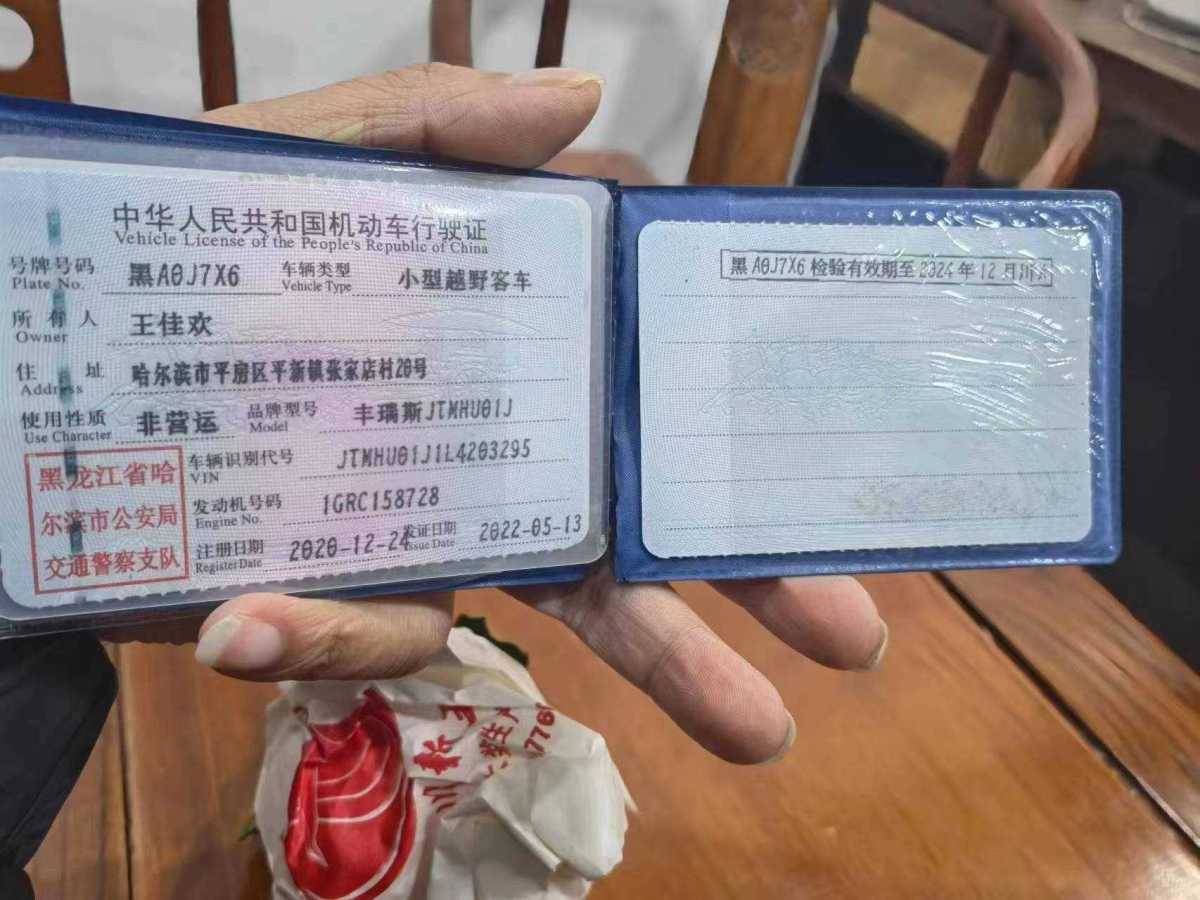 中华人民共和国机动车行驶证
Vehicle License of the People's Republic of China
号牌号码 黑A0J7X6 车辆类型 小型越野客车
Plate No. Vehicle Type
所有人 王佳欢
Owner
住址 哈尔滨市平房区平新镇张家店村20号
Address
使用性质 非营运 品牌型号 丰瑞斯JTMHU01J
Use Character Model
车辆识别代号 JTMHU01J1L4203295
VIN
发动机号码 1GRC158728
Engine No.
注册日期 2020-12-24 发证日期 2022-05-13
Register Date Issue Date
黑龙江省哈
尔滨市公安局
交通警察支队
黑A0J7X6 检验有效期至 2024 年 12 月
776